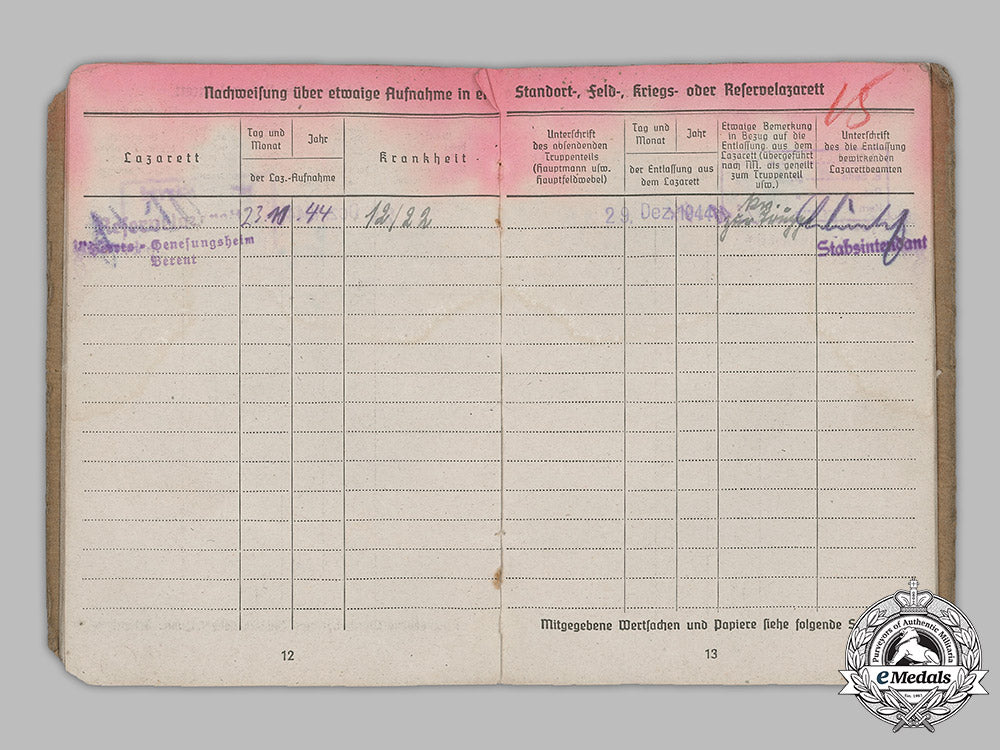 Nachweisung über etwaige Aufnahme in ei
Standort-, Feld-, Kriegs- oder Reservelazarett
15
Lazarett
Tag und Monat
Jahr
der Laz.-Aufnahme
Krankheit
Unterschrift
des absendenden
Truppenteils
(Hauptmann usw.
Hauptfeldwebel)
Tag und Monat
Jahr
der Entlassung aus
dem Lazarett
Etwaige Bemerkung
in Bezug auf die
Entlassung aus dem
Lazarett (übergeführt
nach N. als geheilt
zum Truppenteil
usw.)
Unterschrift
des die Entlassung
bewirkenden
Lazarettbeamten
23. 44 12/22
29. Dez. 1944
kv.
zur Truppe
Genesungsheim
Berent
Stabsintendant
Mitgegebene Wertsachen und Papiere siehe folgende S
12
13
Purveyors of Authentic Militaria
eMedals